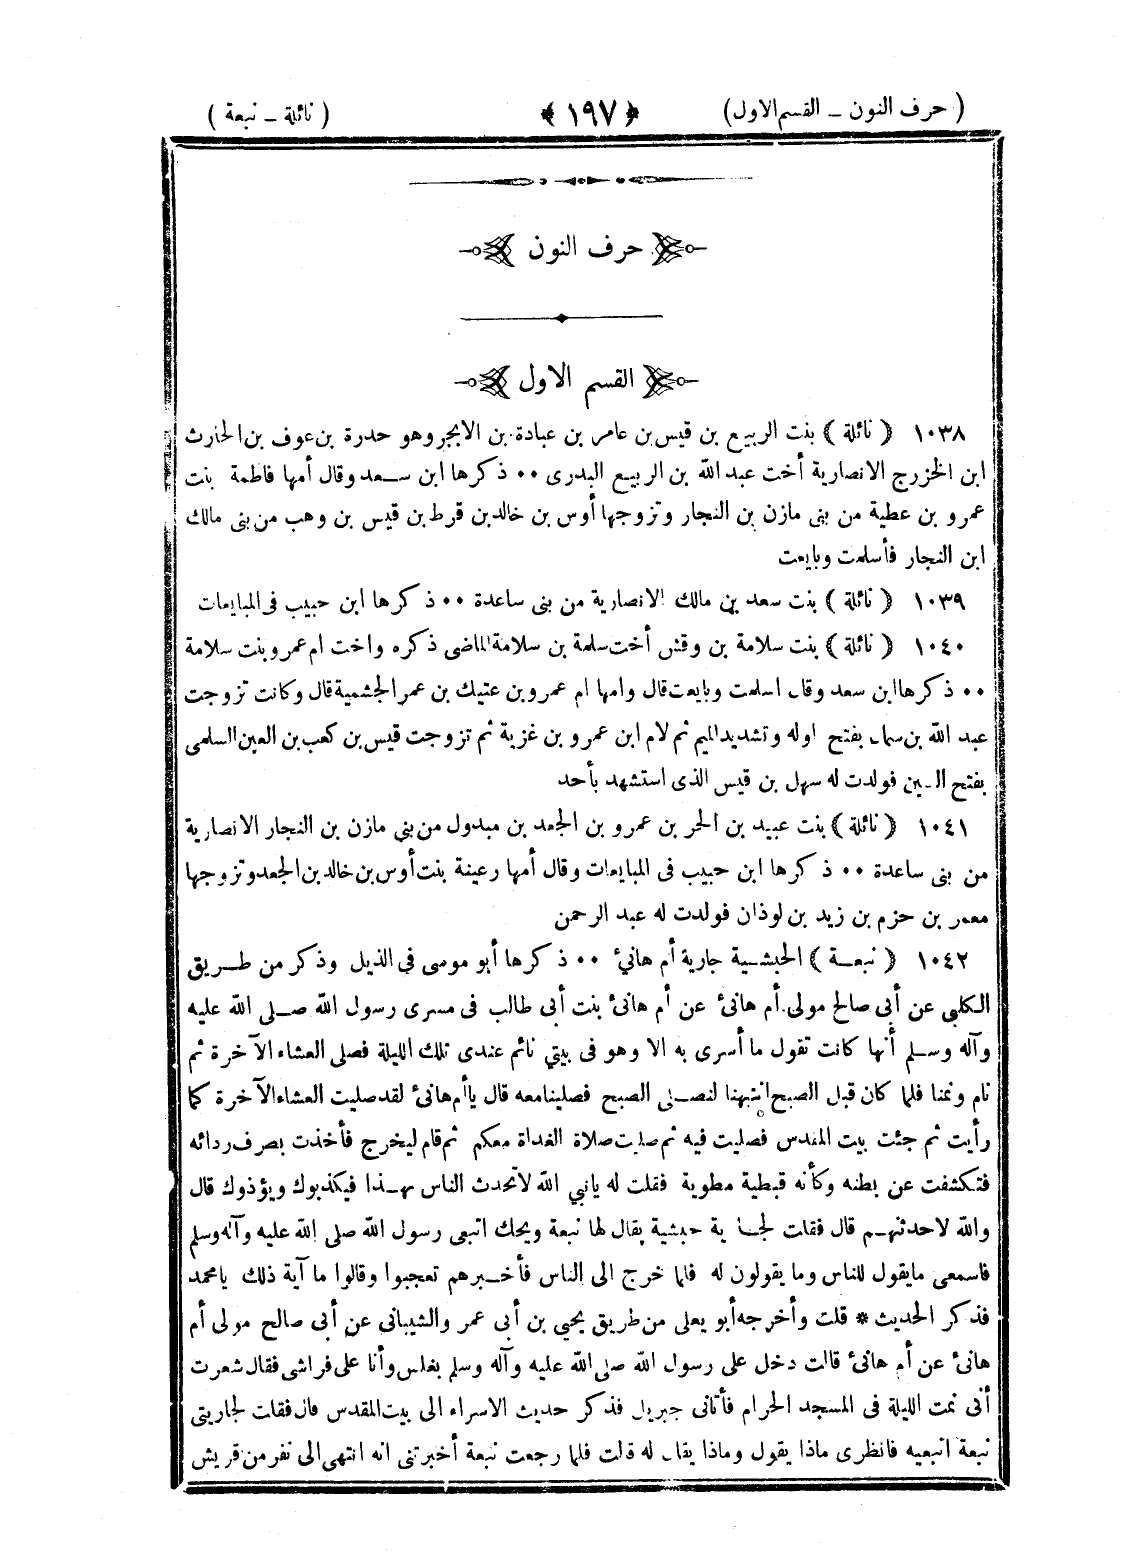 ( حرف النون ــ القسم الاول ) ﴿ ١٩٧ ﴾ ( نائلة ــ نبعة )
حرف النون
القسم الاول
١٠٣٨ ( نائلة ) بنت الربيع بن قيس بن عامر بن عبادة بن الابجر وهو حدرة بن عوف بن الحارث
ابن الخزرج الانصارية أخت عبد الله بن الربيع البدرى ٠٠ ذكرها ابن سعد وقال أمها فاطمة بنت
عمرو بن عطية من بنى مازن بن النجار وتزوجها أوس بن خالد بن قرط بن قيس بن وهب من بنى مالك
ابن النجار فأسلمت وبايعت
١٠٣٩ ( نائلة ) بنت سعد بن مالك الانصارية من بنى ساعدة ٠٠ ذكرها ابن حبيب فى المبايعات
١٠٤٠ ( نائلة ) بنت سلامة بن وقش أخت سلمة بن سلامة الماضى ذكره واخت ام عمرو بنت سلامة
٠٠ ذكرها ابن سعد وقال اسلمت وبايعت قال وامها ام عمرو بن عتيك بن عمر الجشمية قال وكانت تزوجت
عبد الله بن سمال بفتح اوله وتشديد الميم ثم لام ابن عمرو بن غزية ثم تزوجت قيس بن كعب بن العين السلمى
بفتح السين فولدت له سهل بن قيس الذى استشهد بأحد
١٠٤١ ( نائلة ) بنت عبيد بن الحر بن عمرو بن الجعد بن مبدول من بني مازن بن النجار الانصارية
من بنى ساعدة ٠٠ ذكرها ابن حبيب فى المبايعات وقال أمها رعينة بنت أوس بن خالد بن الجعد وتزوجها
معمر بن حزم بن زيد بن لوذان فولدت له عبد الرحمن
١٠٤٢ ( نبعة ) الحبشية جارية أم هانئ ٠٠ ذكرها أبو موسى فى الذيل وذكر من طريق
الكلبى عن أبى صالح مولى أم هانئ عن أم هانئ بنت أبى طالب فى مسرى رسول الله صلى الله عليه
وآله وسلم أنها كانت تقول ما أسرى به الا وهو فى بيتي نائم عندى تلك الليلة فصلى العشاء الآخرة ثم
نام ونمنا فلما كان قبل الصبح انتبهنا لنصلى الصبح فصلينا معه قال يا أم هانئ لقد صليت العشاء الآخرة كما
رأيت ثم جئت بيت المقدس فصليت فيه ثم صليت صلاة الغداة معكم ثم قام ليخرج فأخذت بصرف ردائه
فتكشفت عن بطنه وكأنه قبطية مطوية فقلت له يانبي الله لاتحدث الناس بهذا فيكذبوك ويؤذوك قال
والله لاحدثنهم قال فقلت لجارية حبشية يقال لها نبعة ويحك اتبعى رسول الله صلى الله عليه وآله وسلم
فاسمعى مايقول للناس وما يقولون له فلما خرج الى الناس فأخبرهم تعجبوا وقالوا ما آية ذلك يامحمد
فذكر الحديث * قلت وأخرجه أبو يعلى من طريق يحيى بن أبى عمر والشيبانى عن أبى صالح مولى أم
هانئ عن أم هانئ قالت دخل على رسول الله صلى الله عليه وآله وسلم بغلس وأنا على فراشى فقال شعرت
أنى نمت الليلة فى المسجد الحرام فأتانى جبريل فذكر حديث الاسراء الى بيت المقدس قال فقلت لجاريتى
نبعة اتبعيه فانظرى ماذا يقول وماذا يقال له قالت فلما رجعت نبعة أخبرتنى انه انتهى الى نفر من قريش